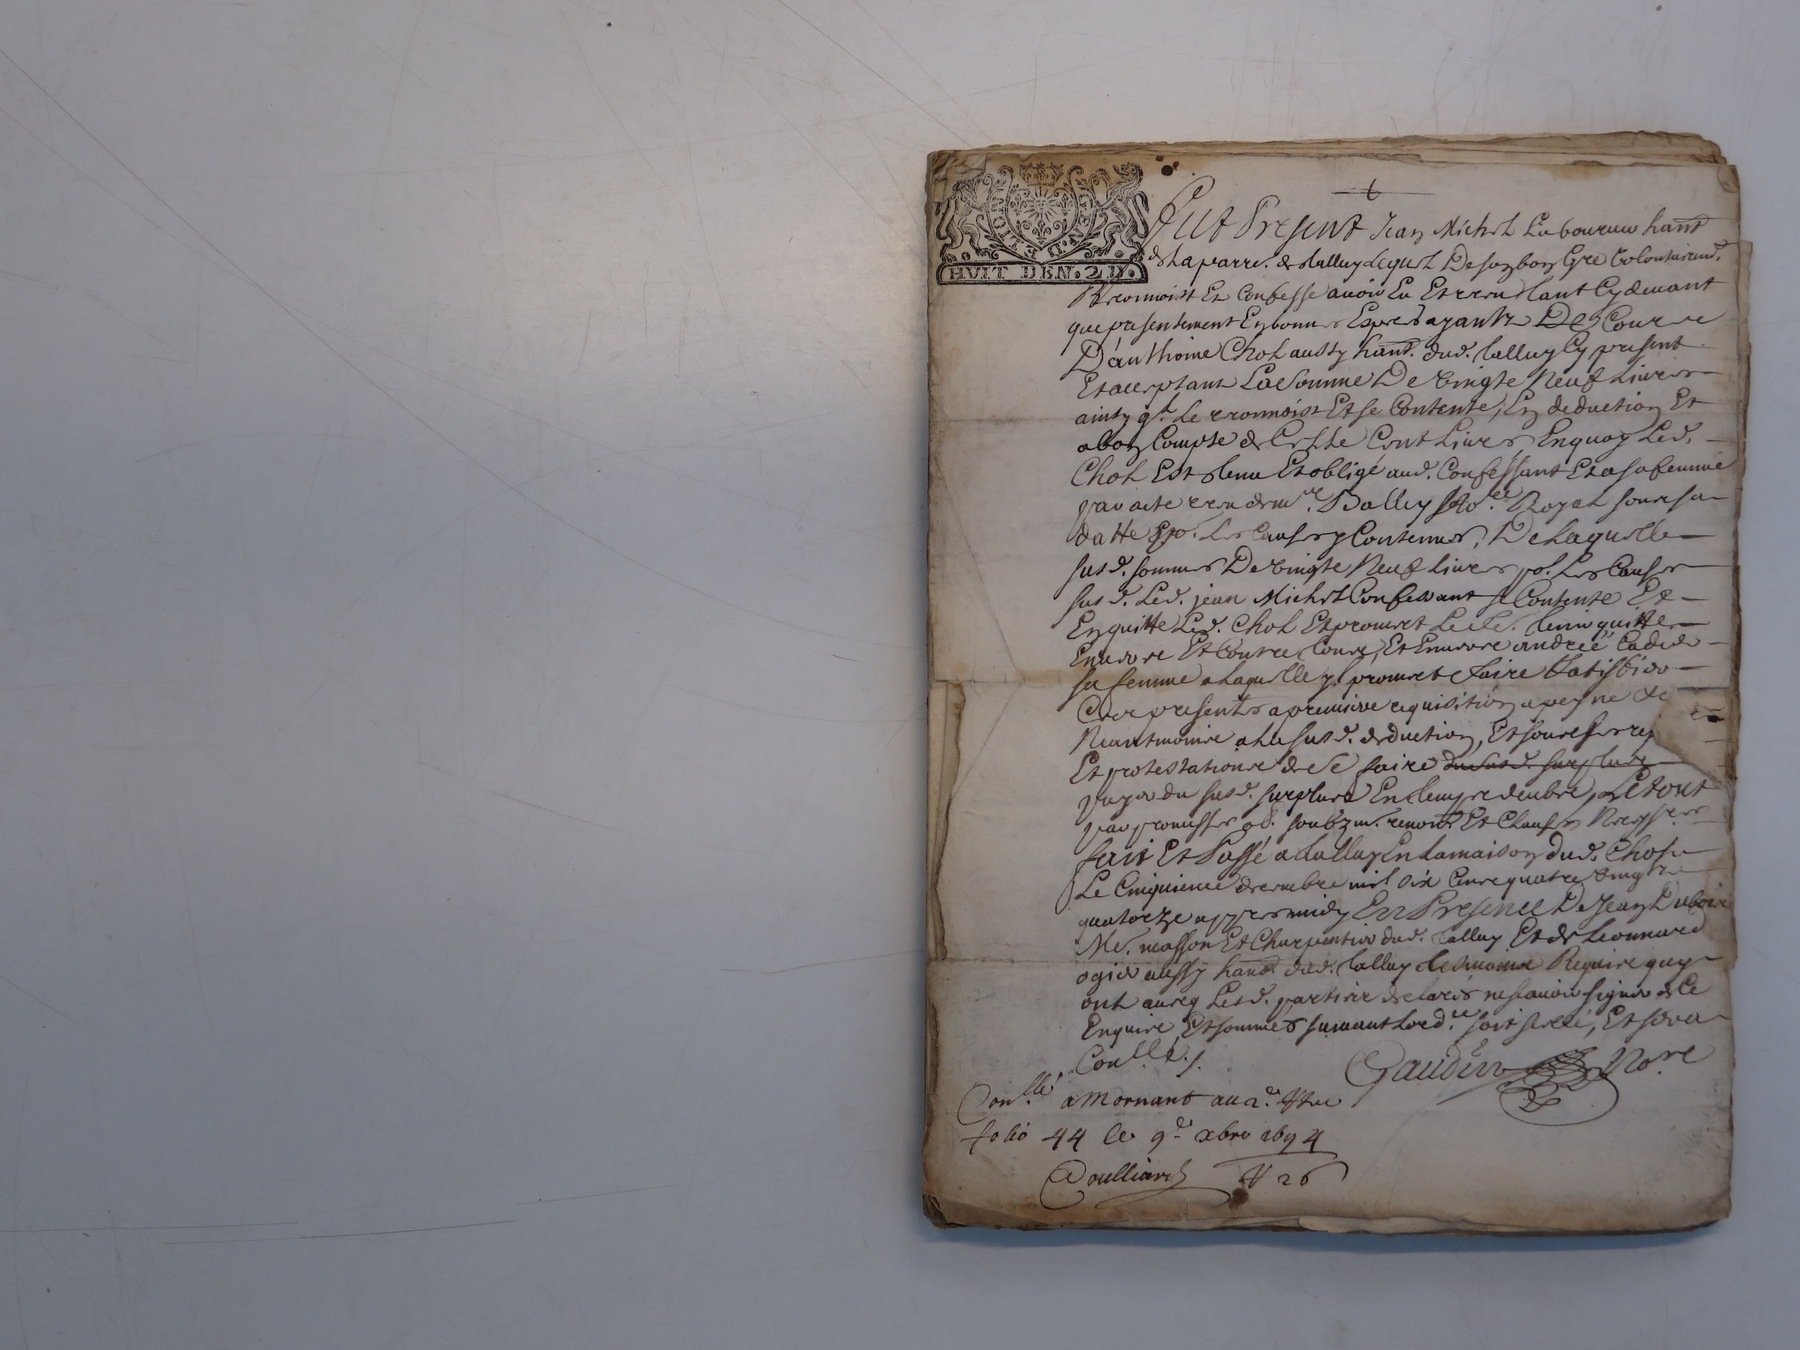 HVIT DEN. 2 D.
Fut Present Jean Michel Labouruu hant
de la parre. de talluy lequel De son bon Gre volontairemt.
Reconnoist Et Confesse avoir Eu Et receu tant Cy devant
que presentement En bonnes Espres ayantz De Cource
D'anthoine Chol aussy hant. dud. talluy Cy present
Et acceptant La somme De vingte Neuf Livres
ainsy qt. Le reconnoist Et se Contente, En deduction Et
a bon Compte de Cent Livres Enquoy Led.
Chol Est tenu Et oblige aud. Confessant Et a sa femme
par acte receu de me. Balley Nore. Royal soubs sa
datte po. Les Causes y Contenues, De Laquelle
susd. somme De vingte Neuf Livres po. Les Causes
susd. Led. jean Michel Confessant se Contente Et
Enquitte Led. Chol Et promet Le tenir quitte
Envers Et Contre tous, Et Envers andrée
sa femme a Laquelle Jl promet faire
Ces presentes a premiere requisition a peyne de
Neantmoins a La susd. deduction, Et soubs
Et protestations de se faire du susd. surplus
payer du susd. surplus En temps deub, Le tout
par promesses obl. soubzm. renons Et Clauses
fait Et Passé a talluy En La maison dud. Chol
Le Cinquieme decembre mil six Cens quatre vingtz
quatorze appres midy En Presence De Jean Dubois
Me. masson Et Charpentier dud. talluy Et de Leonnard
ogier aussy hant dud. talluy tesmoins Requis quy
ont avecq Lesd. parties declarés ne scavoir signer de Ce
Enquis, Et sommés suivant Lord.ce soit scellé, Et sera
Conllé.
Gaudin Nore
Conllé a Mornant au 2d.
folio 44 le 9e xbre 1694